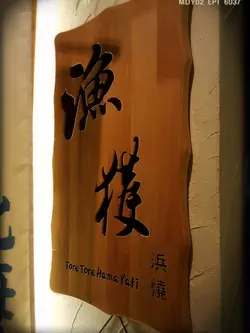 MDY02 EP1 6037
漁
獲
浜
燒
ToreTore Hama Yaki